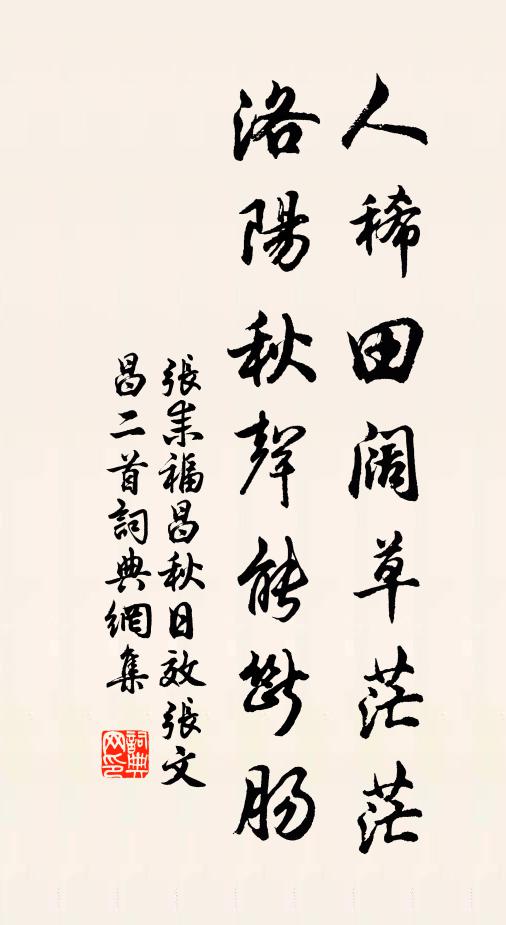 人稀田阔草茫茫
洛陽秋聲能斷腸
張耒福昌秋日效張文
昌二首詞典網集
詞典
网印